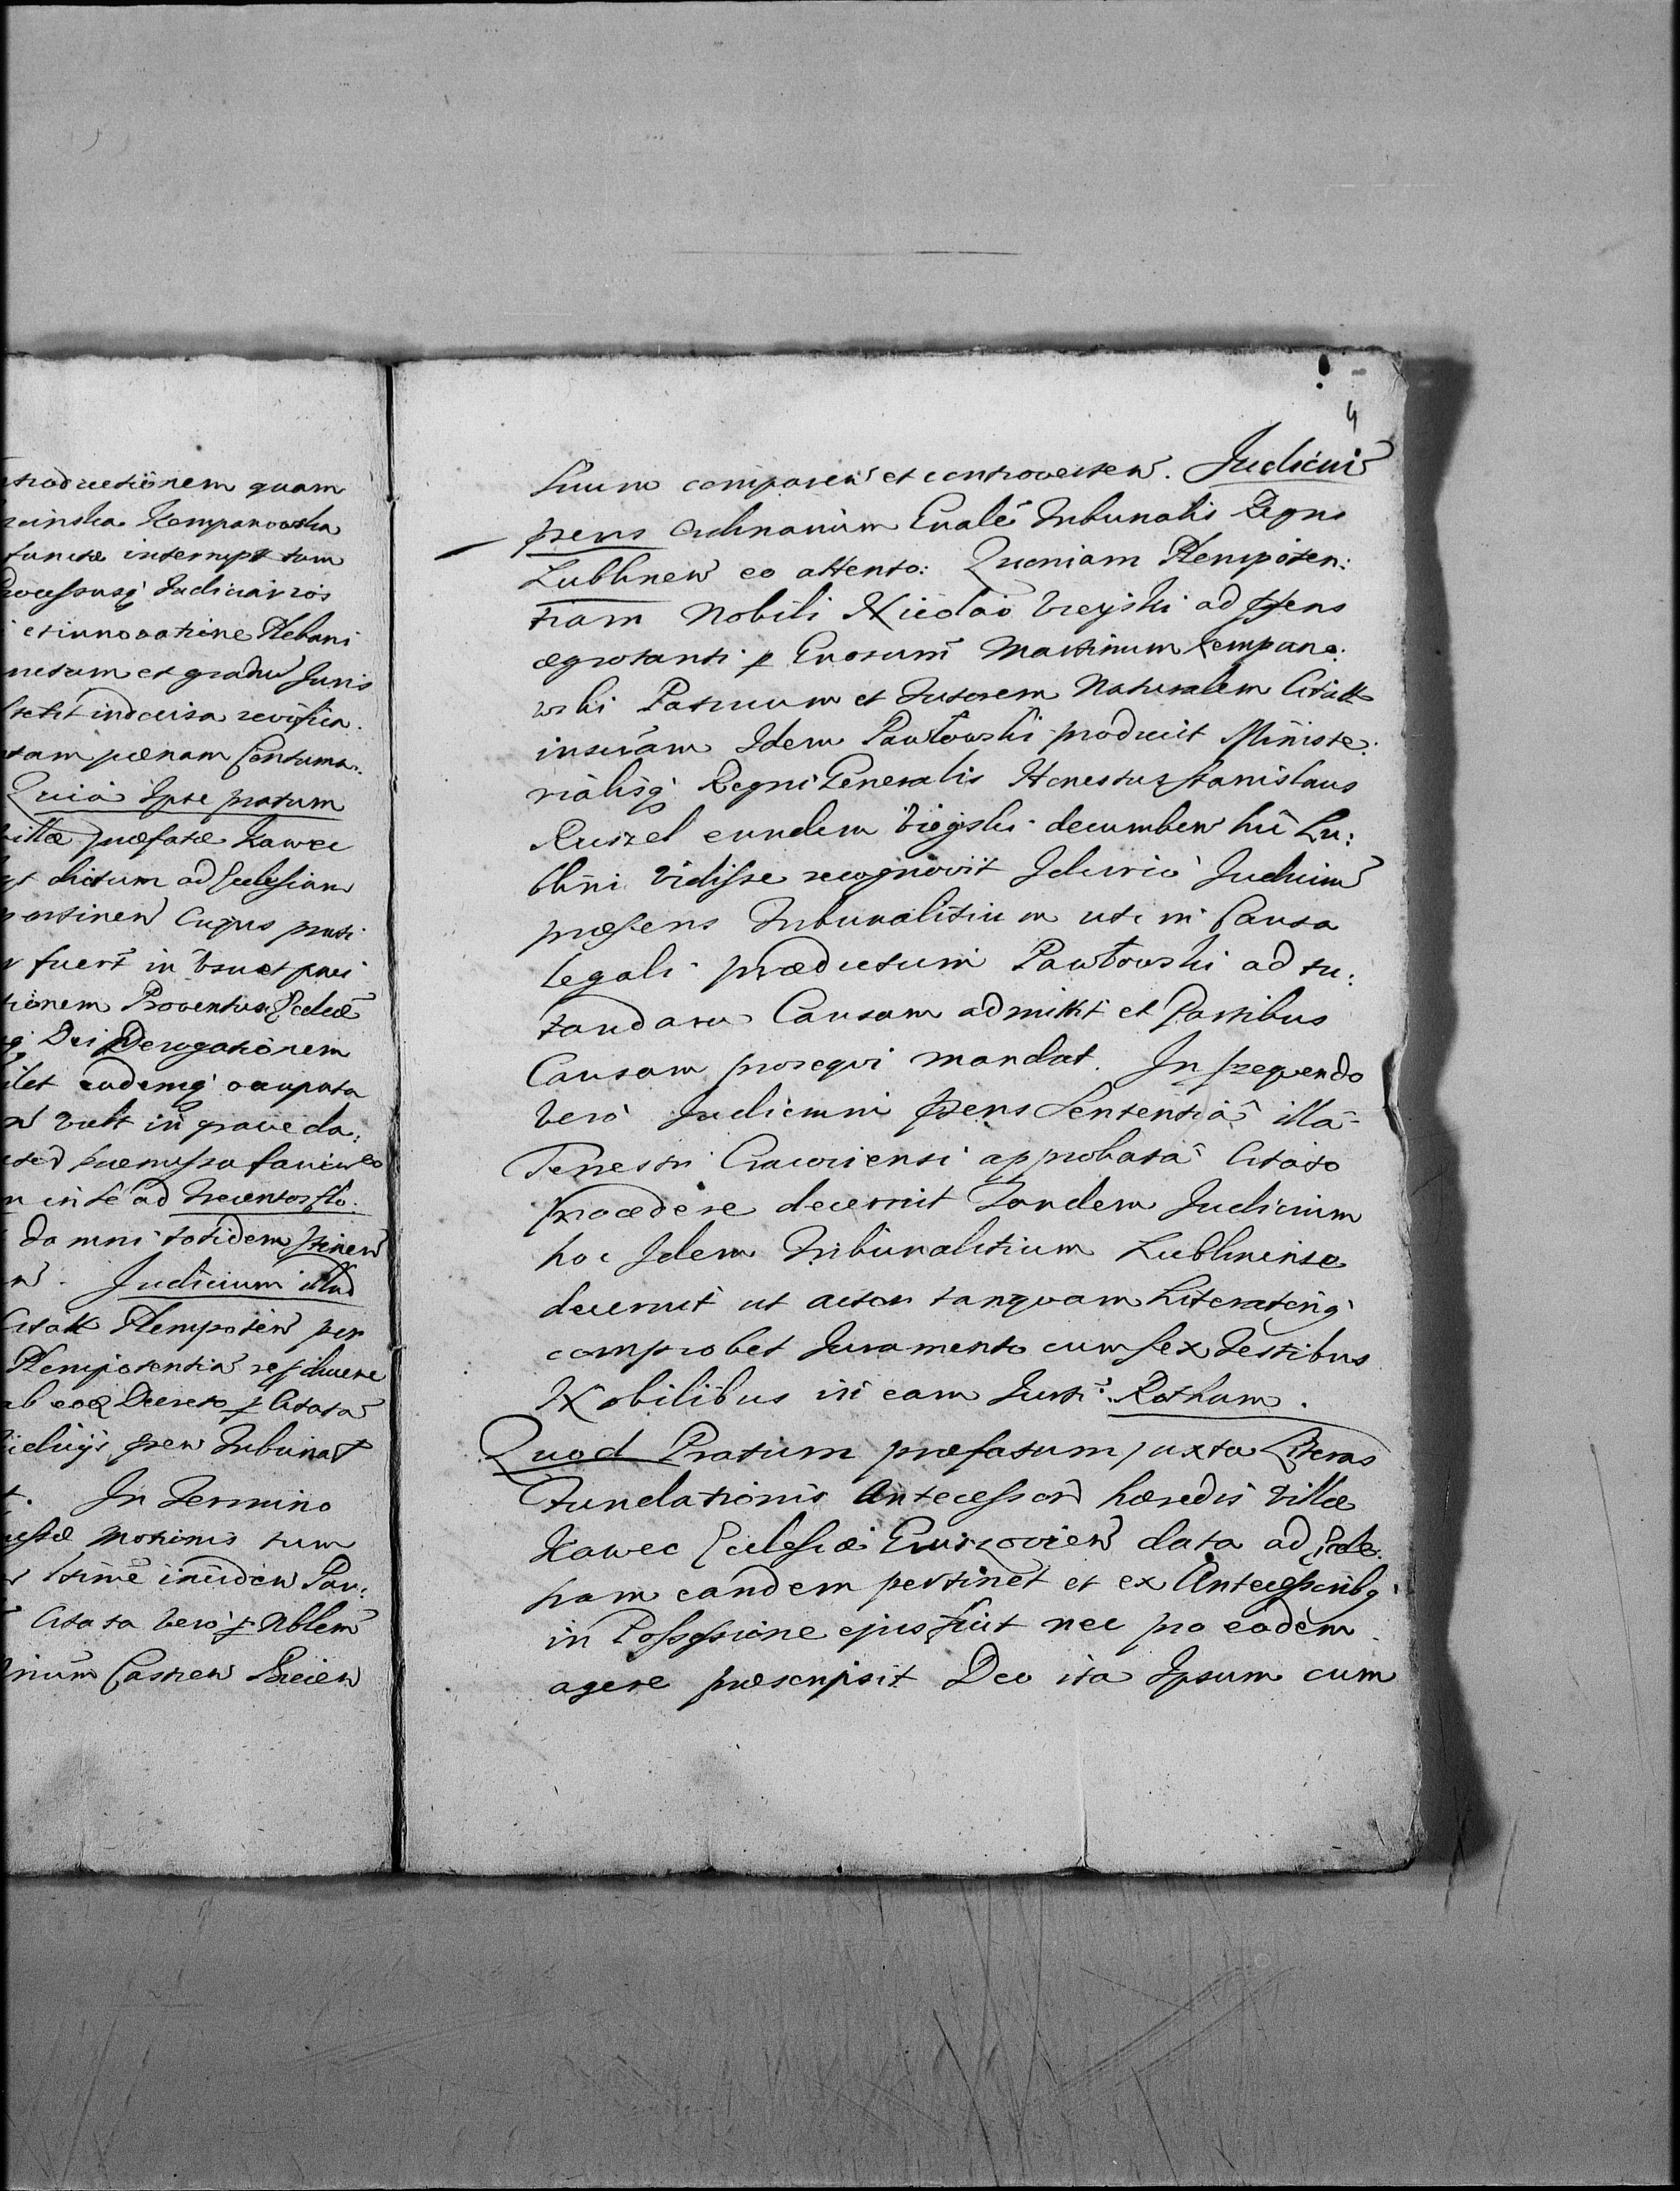 troductionem quam
Kempanowska
functae interrupt tum
Processusq Judiciarios
et innovatione Plebani
netum et gradu Juris
stetit indecisa
tam paenam Contuma:
Quia Ipse pratum
villae praefatae Kawec
dictum ad Ecclesiam
pertinen Cujus
fuert in Usu et
tionem Proventus Eccliae
Dei Derogationem
ilet eademq occupata
vult in grave da:
praemissa
in se ad Trecentos flo.
damni totidem
Judicium illud
Citatt Plenipoten per
Plenipotentia
ab eoq Decreto p Citata
pren Tribunat
In Termino
Motionis tum
inciden Par:
Citata vero p Nblem
Castren
4
Suum comparen et controverten. Judiciu
prens Ordinarium Gnale Tribunalis Regni
Lublinen eo attento: Quoniam Plenipoten:
tiam Nobili Nicolao Vieyski ad prens
aegrotanti p Gnosum Martinum Kempano:
wski Patruum et Tutorem Naturalem Citatt
inseram Idem Pawlowski produxit Ministe:
rialisq Regni Generalis Honestus Stanislaus
Ruszel eundem Vieyski decumben hic Lu:
blini vidisse recognovit Idcirco Judicium
praesens Tribunalitium uti in Causa
legali praedictum Pawlowski ad tu:
tandam Causam admittit et Partibus
Causam prosequi mandat. In prequendo
vero Judicium prens Sententia illa
Terrestri Cracoviensi approbata Citato
procedere decernit Tandem Judicium
hoc Idem Tribunalitium Lublinense
decernit ut actor tanquam Literateriq
comprobet Juramento cum sex Testibus
Nobilibus in eam Jurti: Rotham.
Quod Pratum praefatum juxta Literas
Fundationis Antecessor haeredis villae
Kawec Ecclesiae data ad Eccle:
siam eandem pertinet et ex Antecessoribq
in Possessione ejus fuit nec pro eodem
agere praescripsit Deo ita Ipsum cum